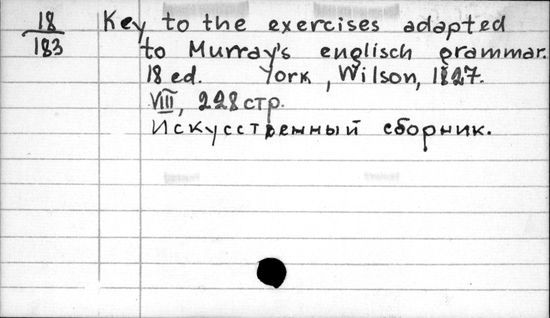 18
183
Key to the exercises adapted
to Murray's englisch grammar.
18 ed. York, Wilson, 1827.
VIII, 228 стр.
Искусственный сборник.